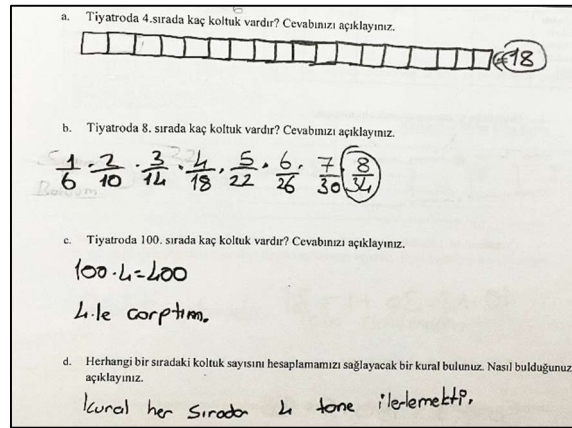 a. Tiyatroda 4.sırada kaç koltuk vardır? Cevabınızı açıklayınız.
18
b. Tiyatroda 8. sırada kaç koltuk vardır? Cevabınızı açıklayınız.
1/6 . 2/10 . 3/14 . 4/18 . 5/22 . 6/26 . 7/30 . 8/34
c. Tiyatroda 100. sırada kaç koltuk vardır? Cevabınızı açıklayınız.
100.4=400
4.le çarptım.
d. Herhangi bir sıradaki koltuk sayısını hesaplamamızı sağlayacak bir kural bulunuz. Nasıl bulduğunuz
açıklayınız.
kural her sırada 4 tane ilerlemekti.